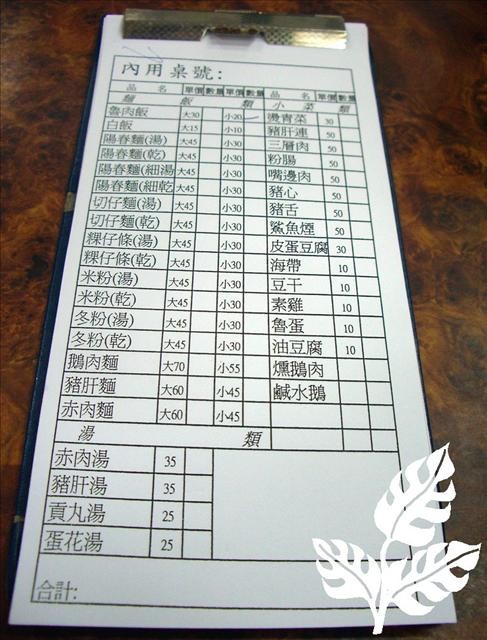 內用桌號:
品名 單價 數量 單價 數量 品名 單價 數量
麵 飯 類 小菜類
魯肉飯 大30 小20 燙青菜 30
白飯 大15 小10 豬肝連 50
陽春麵(湯) 大45 小30 三層肉 50
陽春麵(乾) 大45 小30 粉腸 50
陽春麵(細湯 大45 小30 嘴邊肉 50
陽春麵(細乾 大45 小30 豬心 50
切仔麵(湯) 大45 小30 豬舌 50
切仔麵(乾) 大45 小30 鯊魚煙 50
粿仔條(湯) 大45 小30 皮蛋豆腐 30
粿仔條(乾) 大45 小30 海帶 10
米粉(湯) 大45 小30 豆干 10
米粉(乾) 大45 小30 素雞 10
冬粉(湯) 大45 小30 魯蛋 10
冬粉(乾) 大45 小30 油豆腐 10
鵝肉麵 大70 小55 燻鵝肉
豬肝麵 大60 小45 鹹水鵝
赤肉麵 大60 小45
湯 類
赤肉湯 35
豬肝湯 35
貢丸湯 25
蛋花湯 25
合計: